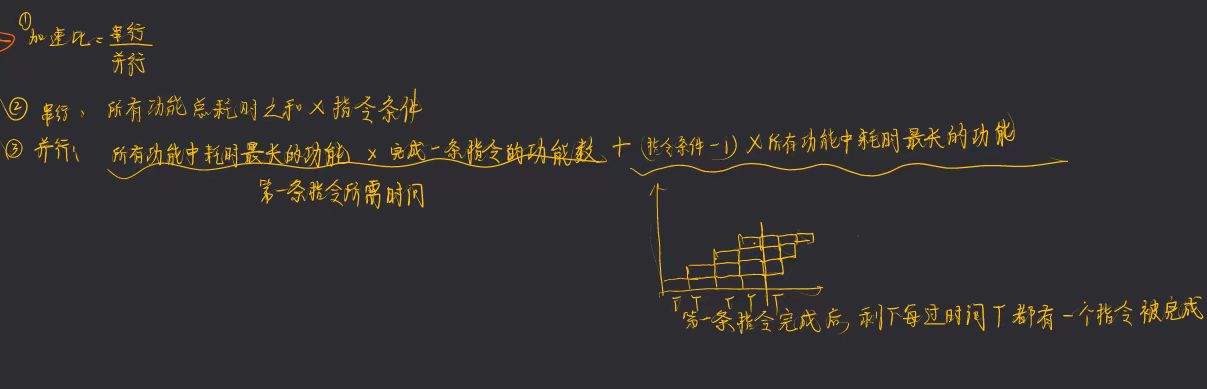 ① 加速比 = 串行 / 并行
② 串行: 所有功能总耗时之和 × 指令条件
③ 并行: 所有功能中耗时最长的功能 × 完成一条指令的功能数 + (指令条件 - 1) × 所有功能中耗时最长的功能
第一条指令所需时间
T T T T T
第一条指令完成后, 剩下每过时间 T 都有一个指令被完成